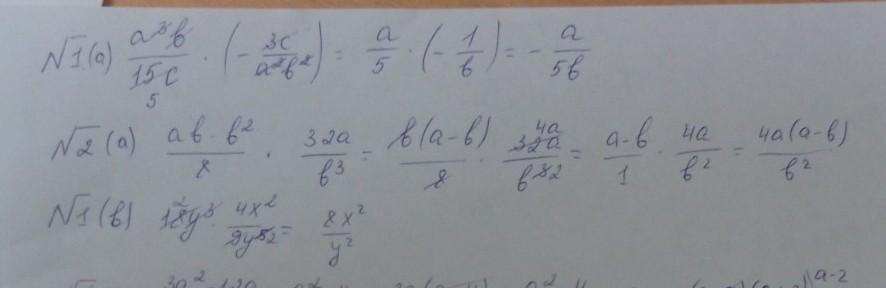 №1(а) a³b/15c · (−3c/a²b²) = a/5 · (−1/b) = −a/5b
5
№2 (а) ab−b²/8 · 32a/b³ = b(a−b)/8 · 32a/b³ = a−b/1 · 4a/b² = 4a(a−b)/b²
4a
2
№1 (в) 18y³ · 4x²/9y⁵ = 8x²/y²
2
2